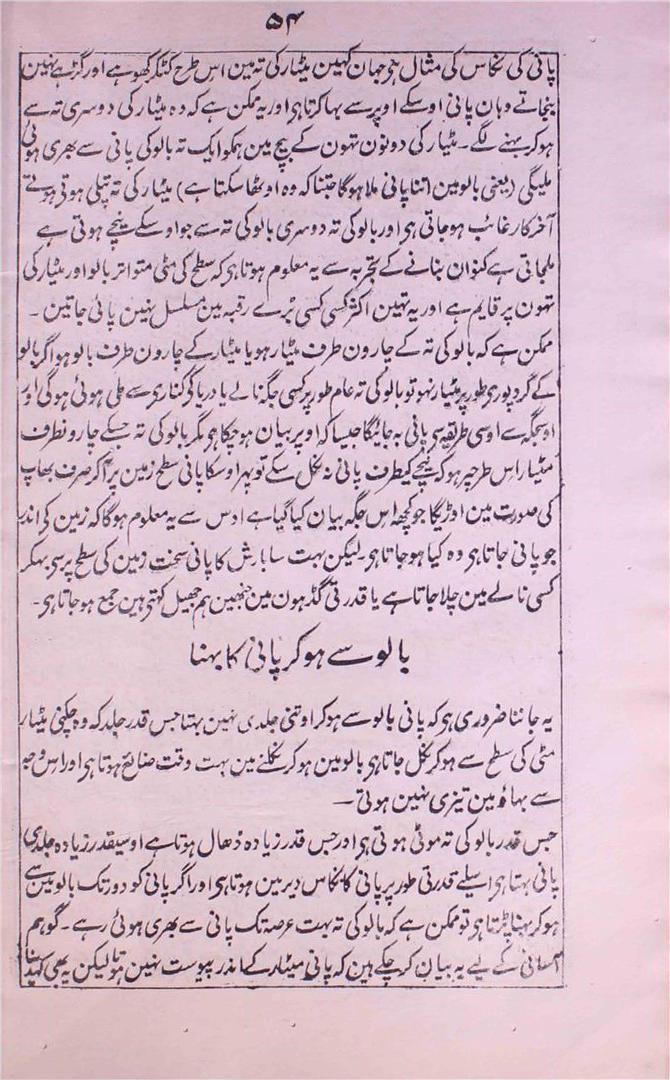 ۵۴
پانی کی نکاس کی مثال ہی جہان کہین مٹیار کی تہ مین اس طرح کٹکر کھوہے اور گڑہے نہین
بنجاتے وہان پانی اوسکے اوپر سے بہا کرتا ہی اور یہ ممکن ہے کہ وہ مٹیار کی دوسری تہ سے
ہو کر بہنے لگے۔ مٹیار کی دونون تہون کے بیچ مین ہمکو ایک تہ بالو کی پانی سے بھری ہوئی
ملیگی (یعنی بالو مین اتنا پانی ملا ہوگا جتنا کہ وہ اوٹھا سکتا ہے) مٹیار کی تہ پتلی ہوتی ہوتے
آخر کار غائب ہو جاتی ہی اور بالو کی تہ دوسری بالو کی تہ سے جو اوسکے نیچے ہوتی ہے
ملجاتی ہے کنوان بنانے کے تجربہ سے یہ معلوم ہوتا ہی کہ سطح کی مٹی متواتر بالو اور مٹیار کی
تہون پر قایم ہے اور یہ تہین اکثر کسی کسی بڑے رقبہ مین مسلسل نہین پائی جاتین۔
ممکن ہے کہ بالو کی تہ کے چارون طرف مٹیار ہو یا مٹیار کے چارون طرف بالو ہو اگر بالو
کے گرد پوری طور پر مٹیار نہو تو بالو کی تہ عام طور پر کسی جگہ نالے یا دریا کی کناری سے ملی ہوئی ہوگی اور
اوسجگہ سے اوسی طریقہ سی پانی بہ جائیگا جیسا کہ اوپر بیان ہو چکا ہی مگر بالو کی تہ جسکے چارونطرف
مٹیار اس طرحپر ہو کہ نیچے کیطرف پانی نہ نکل سکے تو پہر اوسکا پانی سطح زمین پر آکر صرف بھاپ
کی صورت مین اوڑیگا جو کچھ اس جگہ بیان کیا گیا ہے اوس سے یہ معلوم ہوگا کہ زمین کی اندر
جو پانی جاتا ہی وہ کیا ہو جاتا ہی۔ لیکن بہت سا بارش کا پانی سخت زمین کی سطح پر سی بہکر
کسی نالے مین چلا جاتا ہے یا قدرتی گڈہون مین جنھین ہم جھیل کہتی ہین جمع ہو جاتا ہی۔
بالو سے ہو کر پانی کا بہنا
یہ جاننا ضروری ہی کہ پانی بالو سے ہو کر اوتنی جلدی نہین بہتا جس قدر جلد کہ وہ چکنی مٹیار
مٹی کی سطح سے ہو کر نکل جاتا ہی بالو مین ہو کر نکلنے مین بہت وقت ضایع ہوتا ہی اور اس وجہ
سے بہاؤ مین تیزی نہین ہوتی۔
جس قدر بالو کی تہ موٹی ہوتی ہی اور جس قدر زیادہ ڈھال ہوتا ہے اوسیقدر زیادہ جلدی
پانی بہتا ہی اسلیے قدرتی طور پر پانی کا نکاس دیر مین ہوتا ہی اور اگر پانی کو دور تک بالو مین سے
ہو کر بہنا پڑتا ہی تو ممکن ہے کہ بالو کی تہ بہت عرصہ تک پانی سے بھری ہوئی رہے۔ گو ہم
آسانی کے لیے یہ بیان کر چکے ہین کہ پانی مٹیار کے اندر پیوست نہین ہوتا لیکن یہ بھی کہدینا